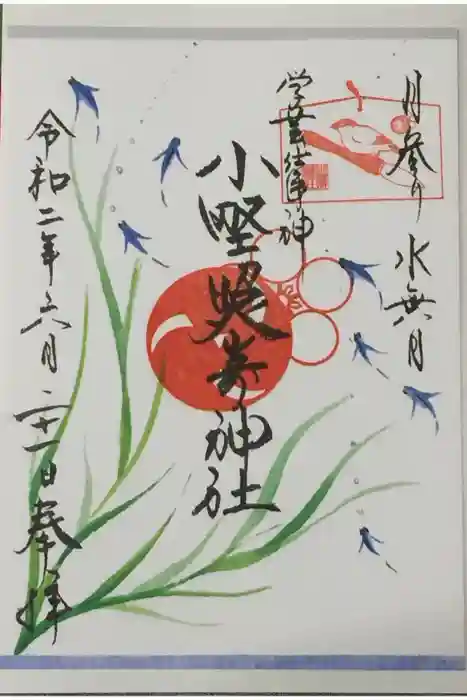 月参り 水無月
神
小野照崎神社
令和二年六月二十一日奉拝